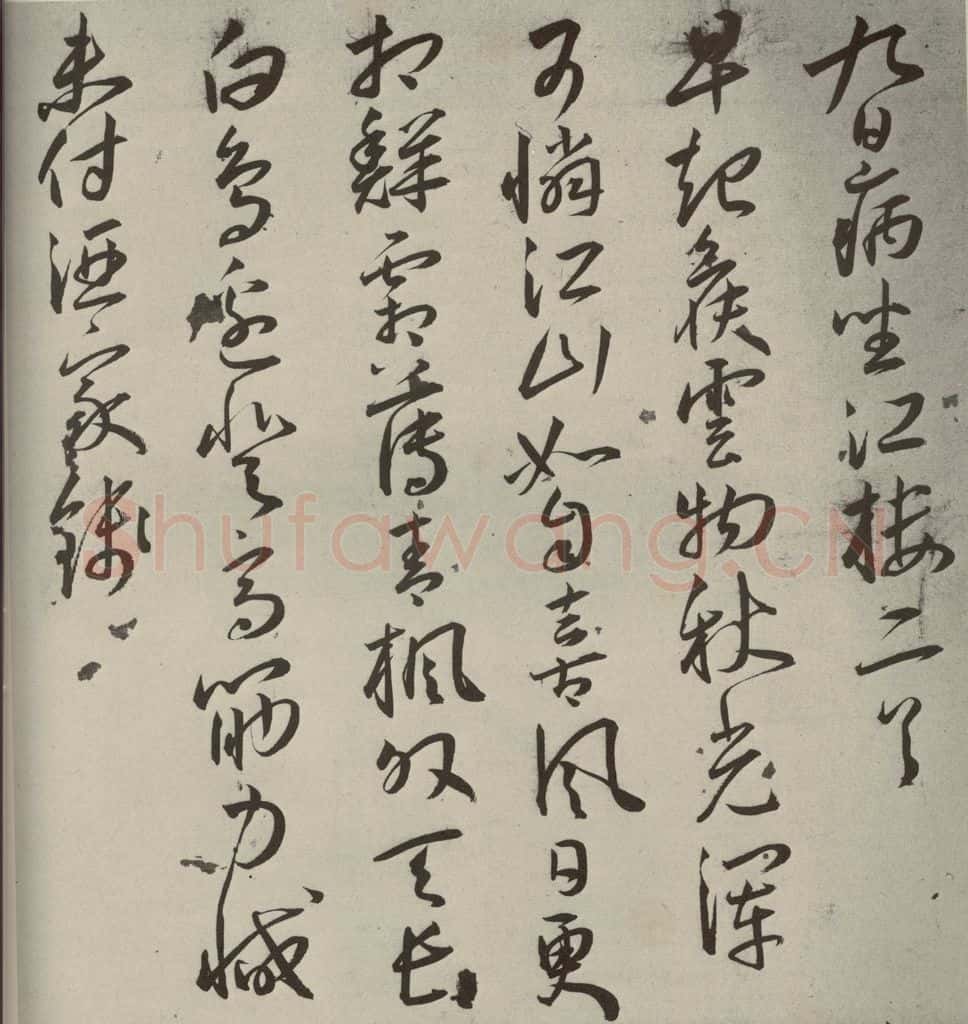 九日病坐江樓二首
早起候雲物秋光渾
可憐江山如自喜風日更
相鮮霜薄青楓外天長
白鳥邊登高筋力減
未付酒家錢
Shufawang.CN